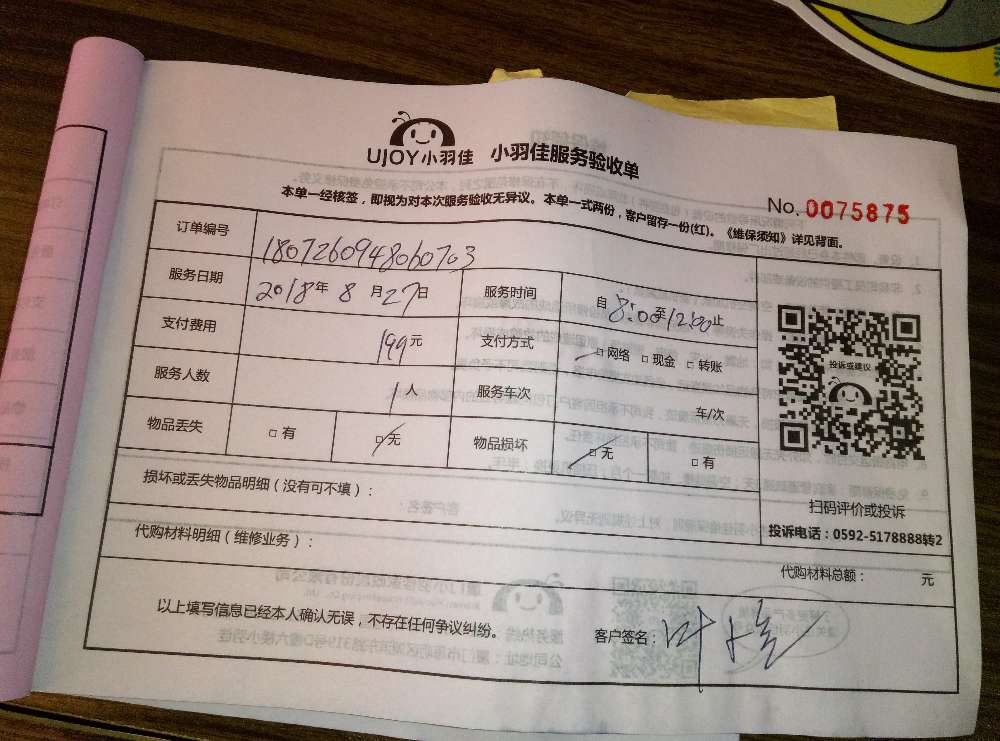 UJOY小羽佳 小羽佳服务验收单
No.0075875
本单一经核签，即视为对本次服务验收无异议。本单一式两份，客户留存一份(红)。《维保须知》详见背面。
订单编号 1807260948060703
服务日期 2018年8月27日 服务时间 自8:00至12:00止
支付费用 199元 支付方式 □网络 □现金 □转账
服务人数 1人 服务车次 车/次
物品丢失 □有 □无 物品损坏 □无 □有
投诉或建议
扫码评价或投诉
投诉电话：0592-5178888转2
损坏或丢失物品明细（没有可不填）：
代购材料明细（维修业务）：
代购材料总额： 元
以上填写信息已经本人确认无误，不存在任何争议纠纷。
客户签名：叶